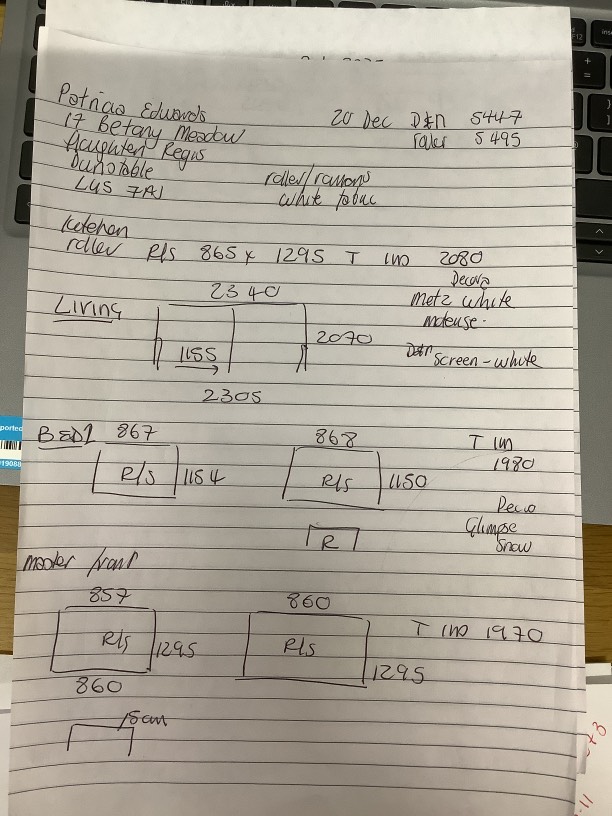 Patricia Edwards
17 Betany Meadow
Haughten Regis
Dunstable
LU5 7AJ
20 Dec D&N 5447
Roller 5495
roller/
white fabric
Kitchen
roller R/s 865 x 1295 T in 2080
Decora
Metz white
Living
2340
2070
1155
2305
Screen - white
BED1
867
R/s
1154
868
R/s
1150
T in
1980
Deco
Glimpse
Snow
R
master front
857
R/s
1295
860
860
R/s
1295
T in 1970
15cm
ported
19088